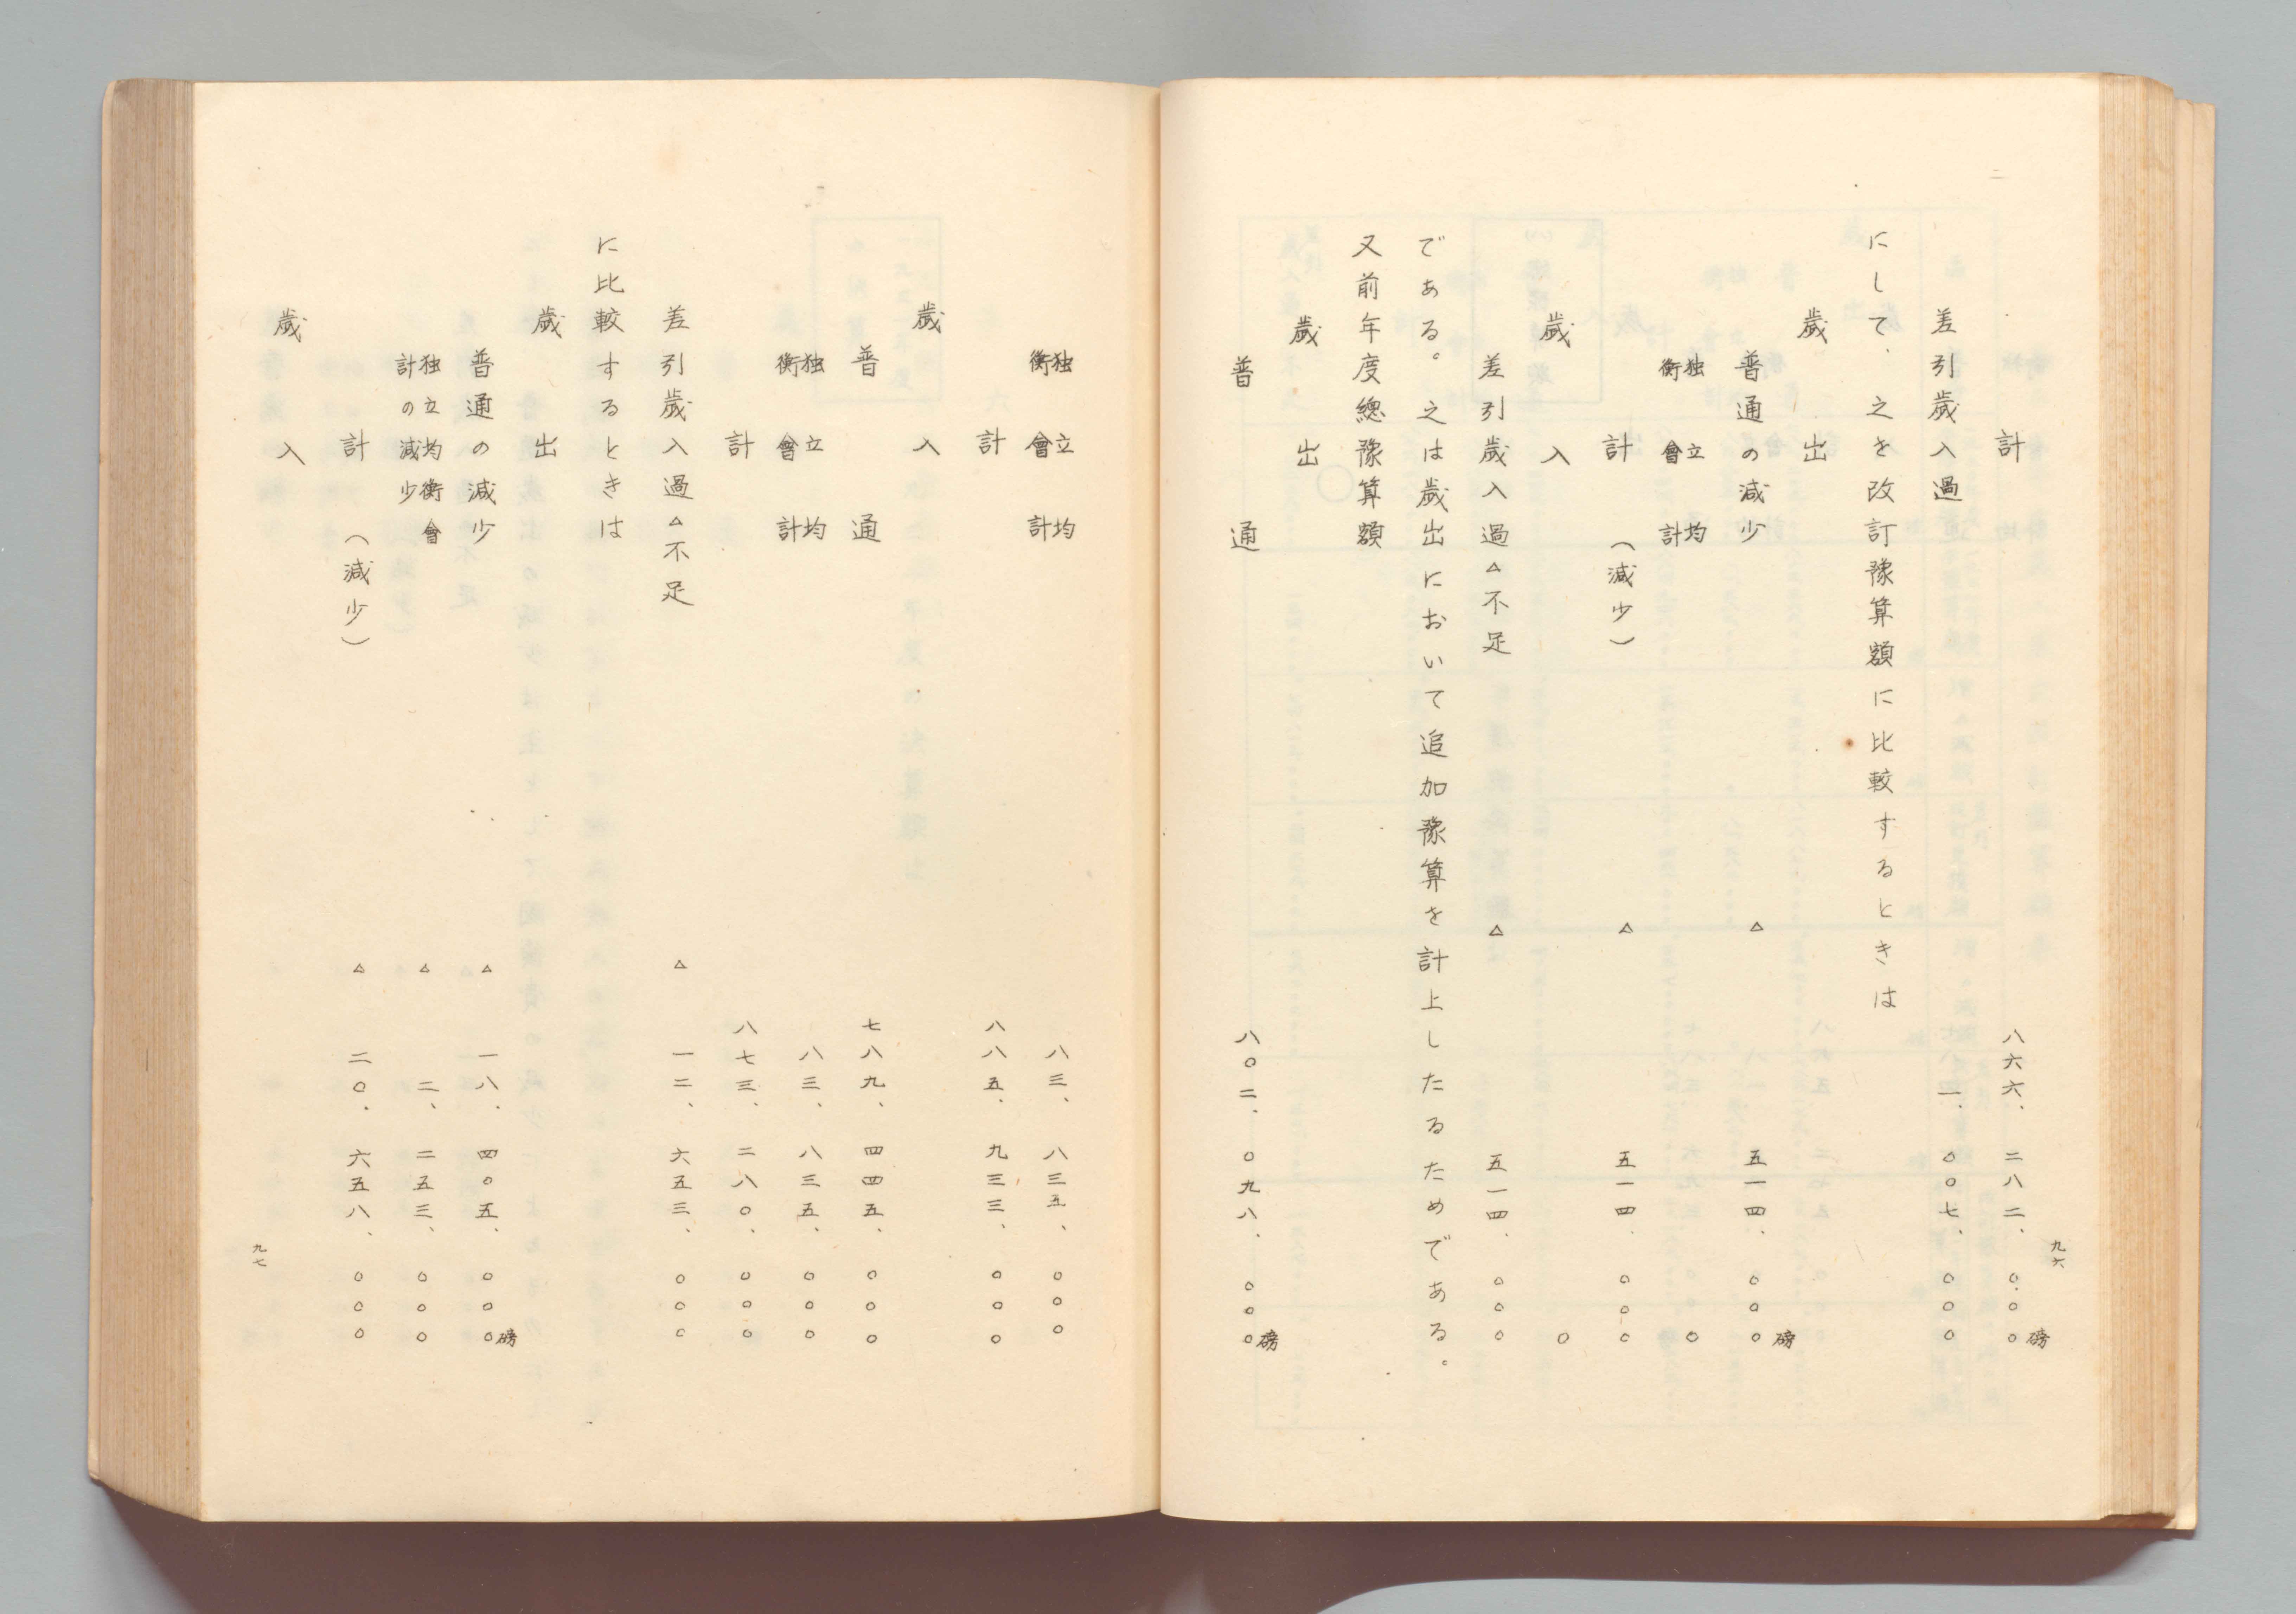 九六
計 八六六、二八二、〇〇〇磅
差引歲入過 一、〇〇七、〇〇〇
にして、之を改訂豫算額に比較するときは
歲出
普通の減少 △ 五一四、〇〇〇磅
独立均衡會計 〇
計（減少） △ 五一四、〇〇〇
歲入 〇
差引歲入過△不足 △ 五一四、〇〇〇
である。之は歲出において追加豫算を計上したるためである。
又前年度總豫算額
歲出
普通 八〇二、〇九八、〇〇〇磅
独立均衡會計 八三、八三五、〇〇〇
計 八八五、九三三、〇〇〇
歲入
普通 七八九、四四五、〇〇〇
独立均衡會計 八三、八三五、〇〇〇
計 八七三、二八〇、〇〇〇
差引歲入過△不足 △ 一二、六五三、〇〇〇
に比較するときは
歲出
普通の減少 △ 一八、四〇五、〇〇〇磅
独立均衡會計の減少 △ 二、二五三、〇〇〇
計（減少） △ 二〇、六五八、〇〇〇
歲入
九七